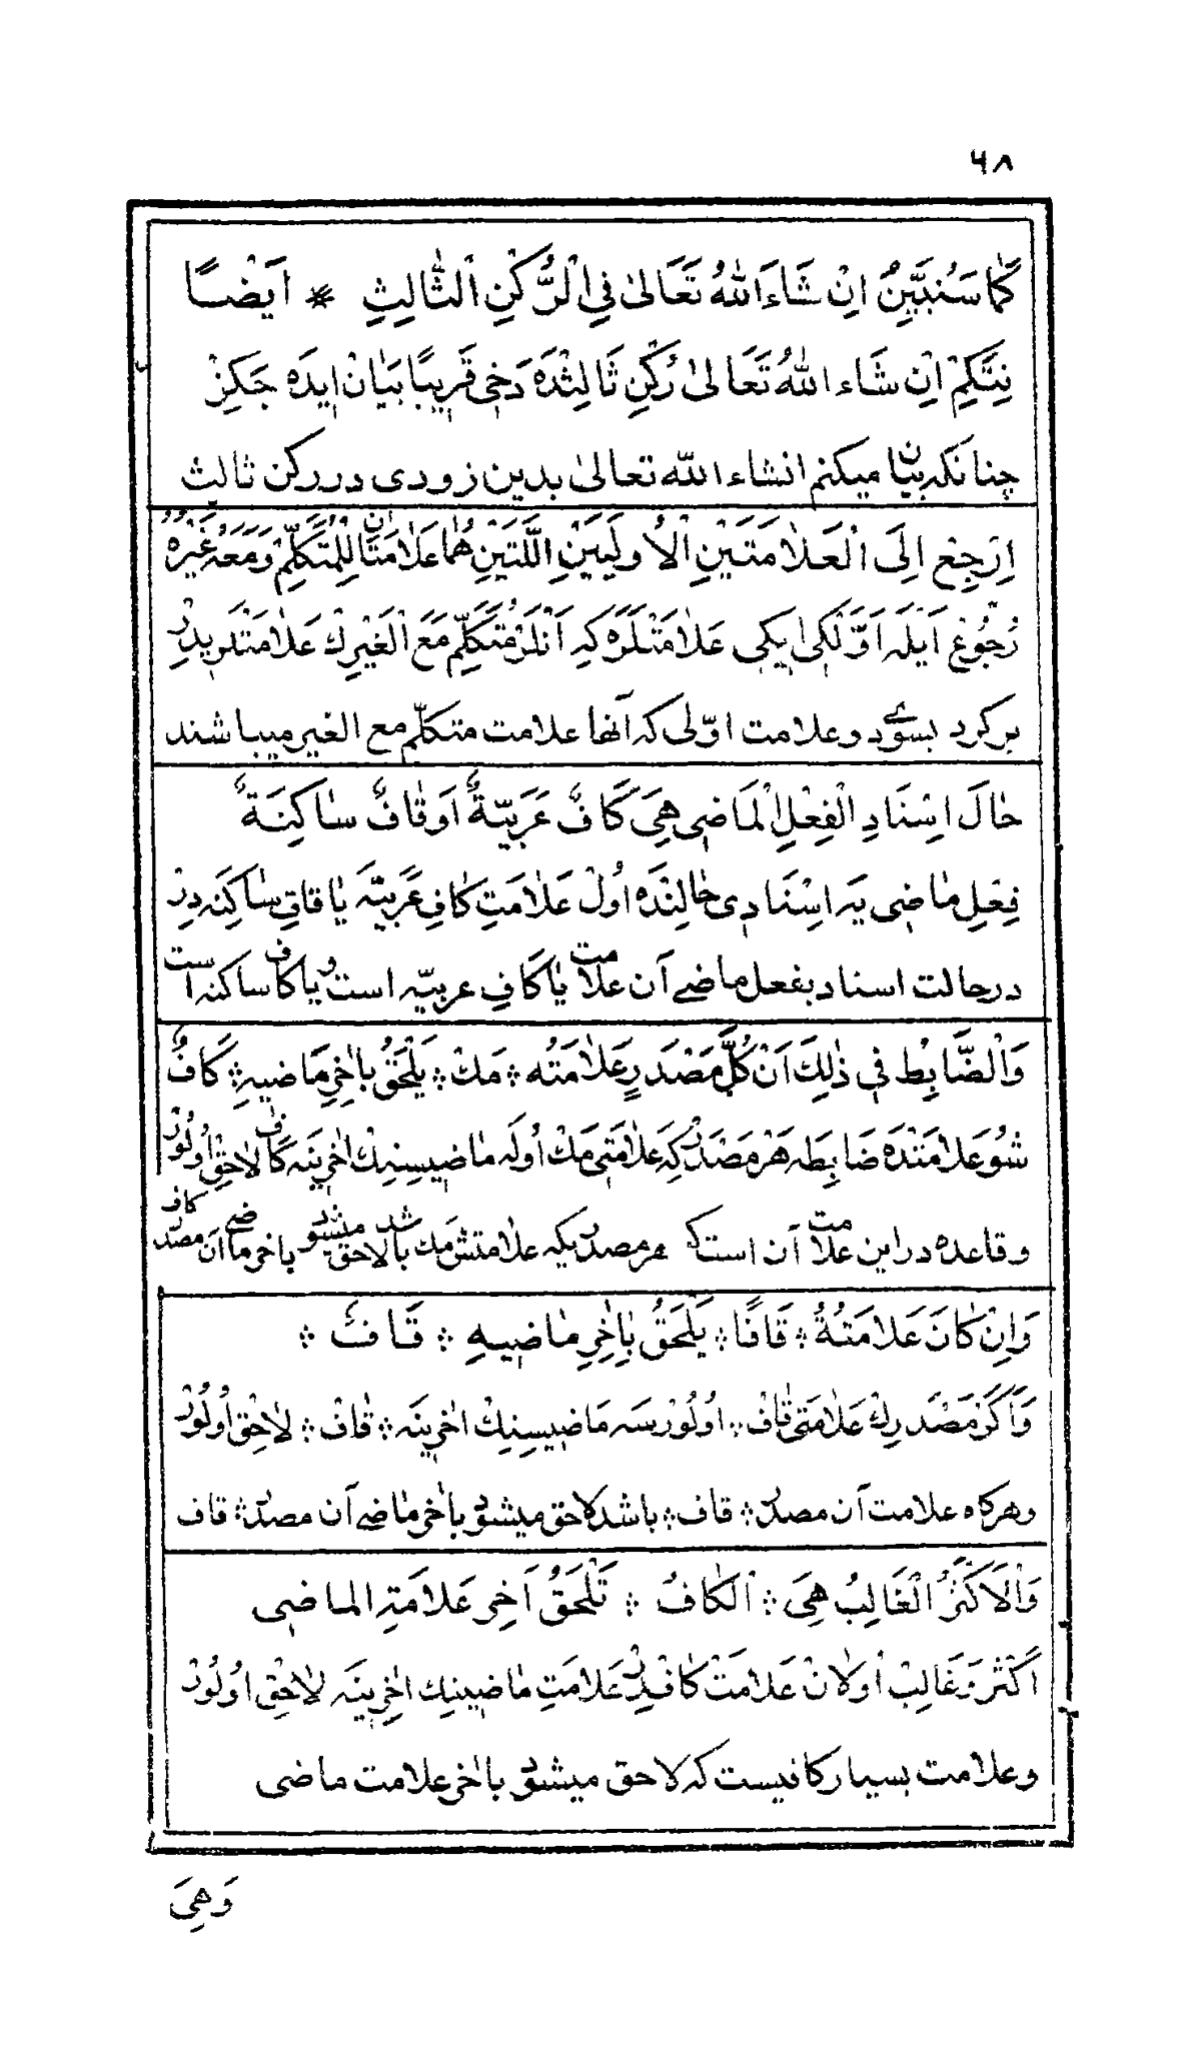 ٦٨
كَمَا سَنُبَيِّنُ اِنْ شَاءَ اللّٰهُ تَعَالىٰ فِي الْرُّكْنِ الثّٰالِثِ * اَيْضًا
نِتَكِمْ اِنْ شَاء اللّٰهُ تَعَالىٰ رُكْنِ ثَالِثْدَه دَخٖى قَرٖيبًا بَيٰان اٖيدَه جَكِزْ
چنانكه بيان ميكنم انشاء اللّٰه تعالىٰ بدين زودى در ركن ثالث
اِرْجِعْ اِلَى الْعَلاٰمَتَيْنِ الْاُولَيَيْنِ اللَّتَيْنِ هُمٰا عَلاٰمَتٰانِ لِلْمُتَكَلِّمْ وَمَعَهُ غَيْرُهُ
رُجُوعْ اَيْلَه اَوَّلَكٖى اٖيكٖى عَلاٰمَتْلَرَه كِه اَنْلَرْ مُتَكَلِّمْ مَعَ الْغَيْرِكْ عَلاٰمَتْلَرٖيدِرْ
بر كرد بسوے دو علامت اوّلى كه آنها علامت متكلّم مع الغير ميباشند
حٰالَ اِسْنَادِ الْفِعْلِ الْمَاضٖى هِيَ كَافٌ عَرَبِيَّةٌ اَوقٰافٌ سٰاكِنَةٌ
فِعْلِ مٰاضٖى يَه اِسْنَادٖى حٰالِنْدَه اُولْ عَلاٰمَتِ كٰافِ عَرَبِيَّه يٰا قاقِ سٰاكِنَه دِرْ
در حالت اسناد بفعل ماضے آن علامت يٰا كَافِ عربيّه است و يا كاف ساكنه است
وَالْضَّابِطْ فٖى ذٰلِكَ اَنْ كُلَّ مَصْدَرٍ عَلاٰمَتُه * مَكْ * يَلْحَقُ بٰاٰخِرِ مَاضٖيهِ * كَافٌ
شُو عَلاٰمَتْدَه ضَابِطَه هَرْ مَصْدَرْ كِه عَلاٰمَتٖى مَكْ اُولَه مٰاضٖيسِنِكْ اٰخِرٖينَه كَافْ لاٰحِقْ اُولُورْ
و قاعده در اين علامت آن است كه هر مصدريكه علاٰمتش مَك باشد لاحق ميشود باخر ماضے آن مصدر كاف
وَاِنْ كٰانَ عَلاٰمَتُهُ * قَافًا * يَلْحَقُ بٰاِخِرِ مٰاضٖيهِ * قَافْ *
وَاَكَرْ مَصْدَرِكْ عَلاٰمَتٖى قٰافْ * اُولُورْسَه مَاضٖيسِنِكْ اٰخِرٖينَه * قٰافْ * لاٰحِقْ اُولُورْ
و هر كاه علامت آن مصدر * قاف * باشد لاحق ميشود باٰخر مٰاضے آن مصدر * قاف
وَالْاَكْثَرُ الْغَالِبُ هِيَ * اَلْكٰافُ * تَلْحَقُ اٰخِر عَلاٰمَةِ الماضٖى
اَكْثَرْ وَغَالِبْ اُولاٰنْ عَلاٰمَتْ كٰافْدِرْ عَلاٰمَتِ مٰاضٖينِك اٰخِرٖينَه لاٰحِقْ اُولُورْ
و علامت بسيار كافيست كه لاحق ميشود باٰخر علامت ماضى
وَهِيَ